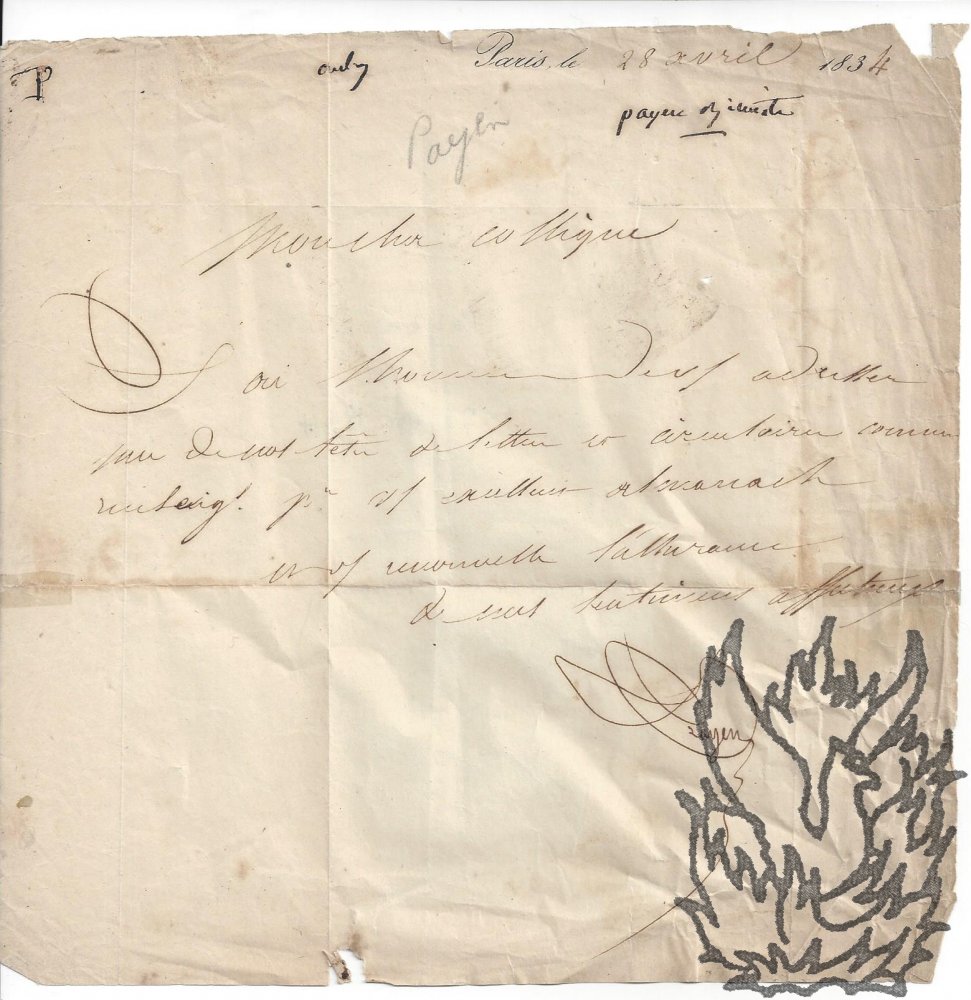 P
Paris, le 28 avril 1834
payen chimiste
Payen
Mon cher collègue
J'ai l'honneur de vs adresser
une de nos têtes de lettre et circulaire comme
renseigt. pr. vs excellent almanach
et vs renouvelle l'assurance
de mes sentimens affectueux
Payen